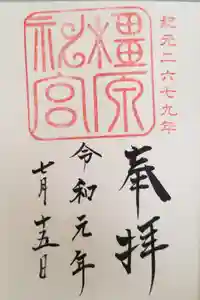 紀元二六七九年
橿原神宮
奉拝
令和元年
七月十五日